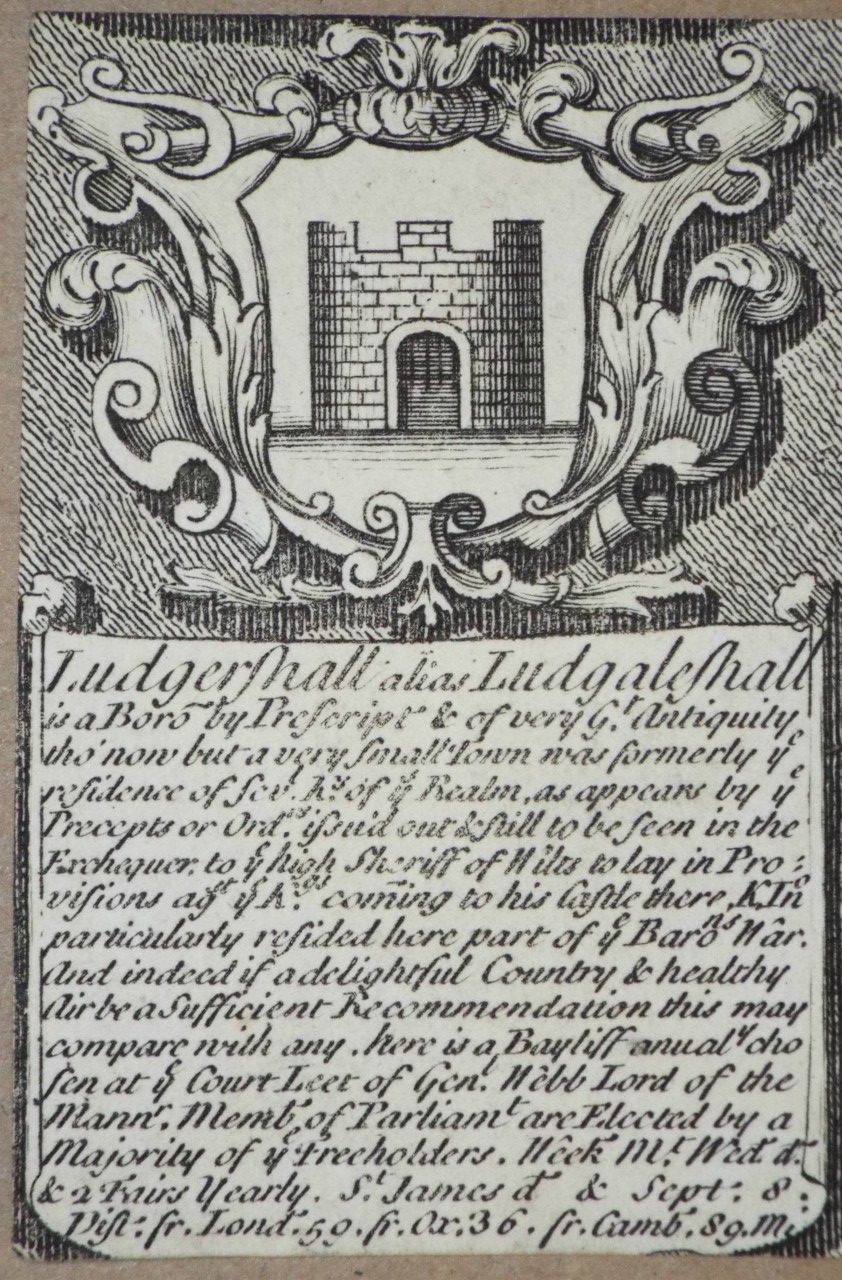 Ludgerſhall alias Ludgaleſhall
is a Boro͞ by Preſcript.ⁿ & of very G.ᵗ Antiquity,
tho' now but a very ſmall Town was formerly yᵉ
reſidence of ſev.ˡ K.ˢ of yᵉ Realm, as appears by yᵉ
Precepts or Ord.ʳˢ iſsu'd out & ſtill to be ſeen in the
Exchequer, to yᵉ high Sheriff of Wilts to lay in Pro-
viſions agˢᵗ yᵉ K.ᵍˢ com̄ing to his Caſtle there, K. Inᵒ
particularly reſided here part of yᵉ Baroⁿˢ Wâr.
And indeed if a delightful Country & healthy
Air be a Sufficient Recommendation this may
compare with any. here is a Bayliff anualʸ cho
ſen at yᵉ Court Leet of Genˡ. Wêbb Lord of the
Mannʳ. Membˢ. of Parliamᵗ are Elected by a
Majority of yᵉ Freeholders. Wêek Mᵗ. Wed. d.
& 2 Fairs Yearly. Sᵗ James d. & Sept. 8.
Diſt. fr. Lond. 59. fr. Ox. 36. fr. Camb. 89. M.